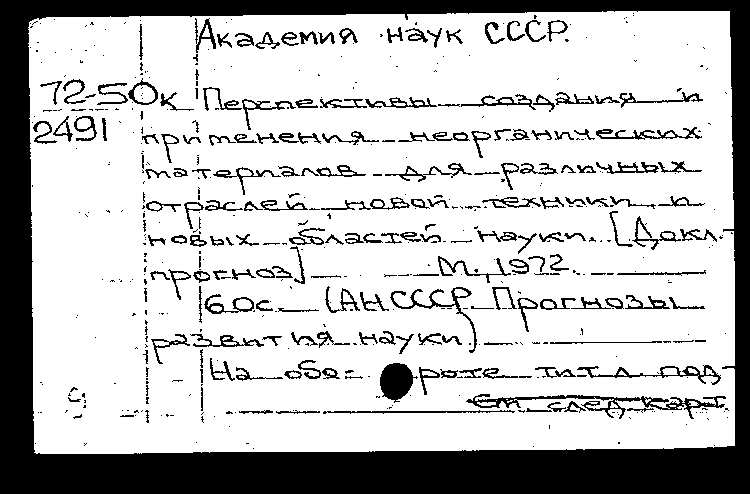 Академия наук СССР.
72-50к Перспективы создания и
2491 применения неорганических
материалов для различных
отраслей новой техники и
новых областей науки. [Докл.-
прогноз] М., 1972.
60с. (АН СССР. Прогнозы
развития науки)
На обо- роте тит. л. под-
См. след. карт.
9